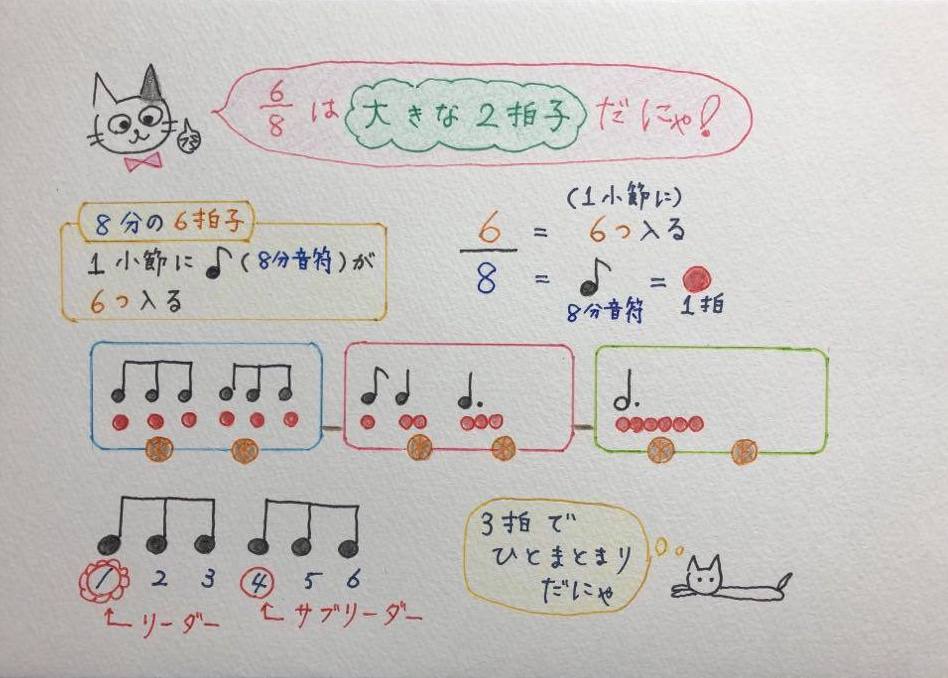 6/8 は 大きな2拍子 だにゃ!
8分の6拍子
1小節に ♪(8分音符)が
6つ入る
(1小節に)
6 = 6つ入る
8 = ♪ = ●
8分音符 1拍
1 2 3 4 5 6
リーダー サブリーダー
3拍で
ひとまとまり
だにゃ